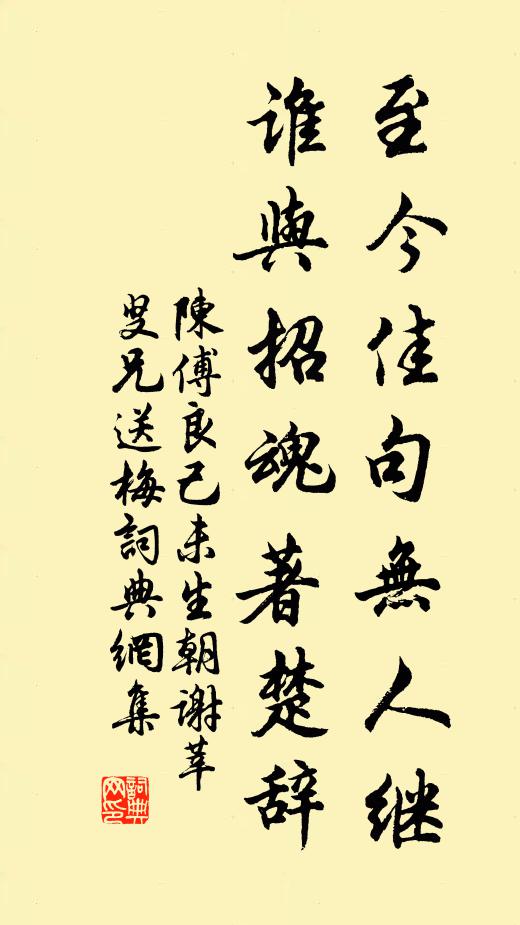 至今佳句無人继
谁與招魂著楚辞
陳傅良己未生朝谢莘
叟兄送梅詞典網集
詞典
网印